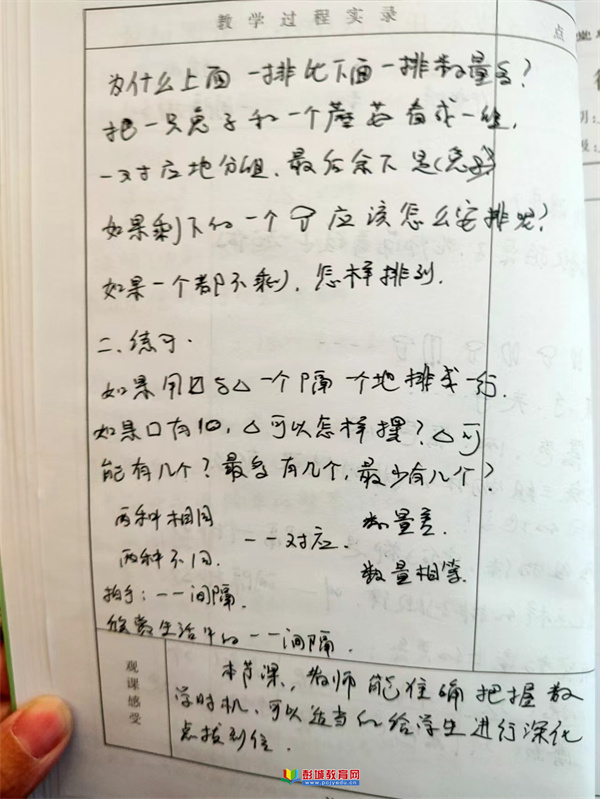 教学过程实录
点
为什么上面一排比下面一排数量多?
把一只兔子和一个蘑菇看成一组,
一一对应地分组,最后余下是(兔子)
如果剩下的一个 应该怎么安排呢?
如果一个都不剩,怎样排列.
二、练习.
如果用□与△一个隔一个地排成一行.
如果□有10,△可以怎样摆?△可
能有几个?最多有几个,最少有几个?
两种相同 数量差.
一一对应.
两种不同. 数量相等.
拍手:一一间隔.
欣赏生活中的一一间隔.
观课感受
本节课,教师能准确把握教
学时机,可以适当的给学生进行深化
点拨到位.
彭城教育网
www.pcjyedu.cn